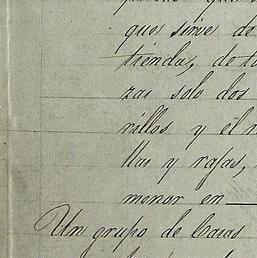 que sirve de
tienda, de to
zas solo dos
nillos y el
llas y rejas,
menor en
Un grupo de Casas